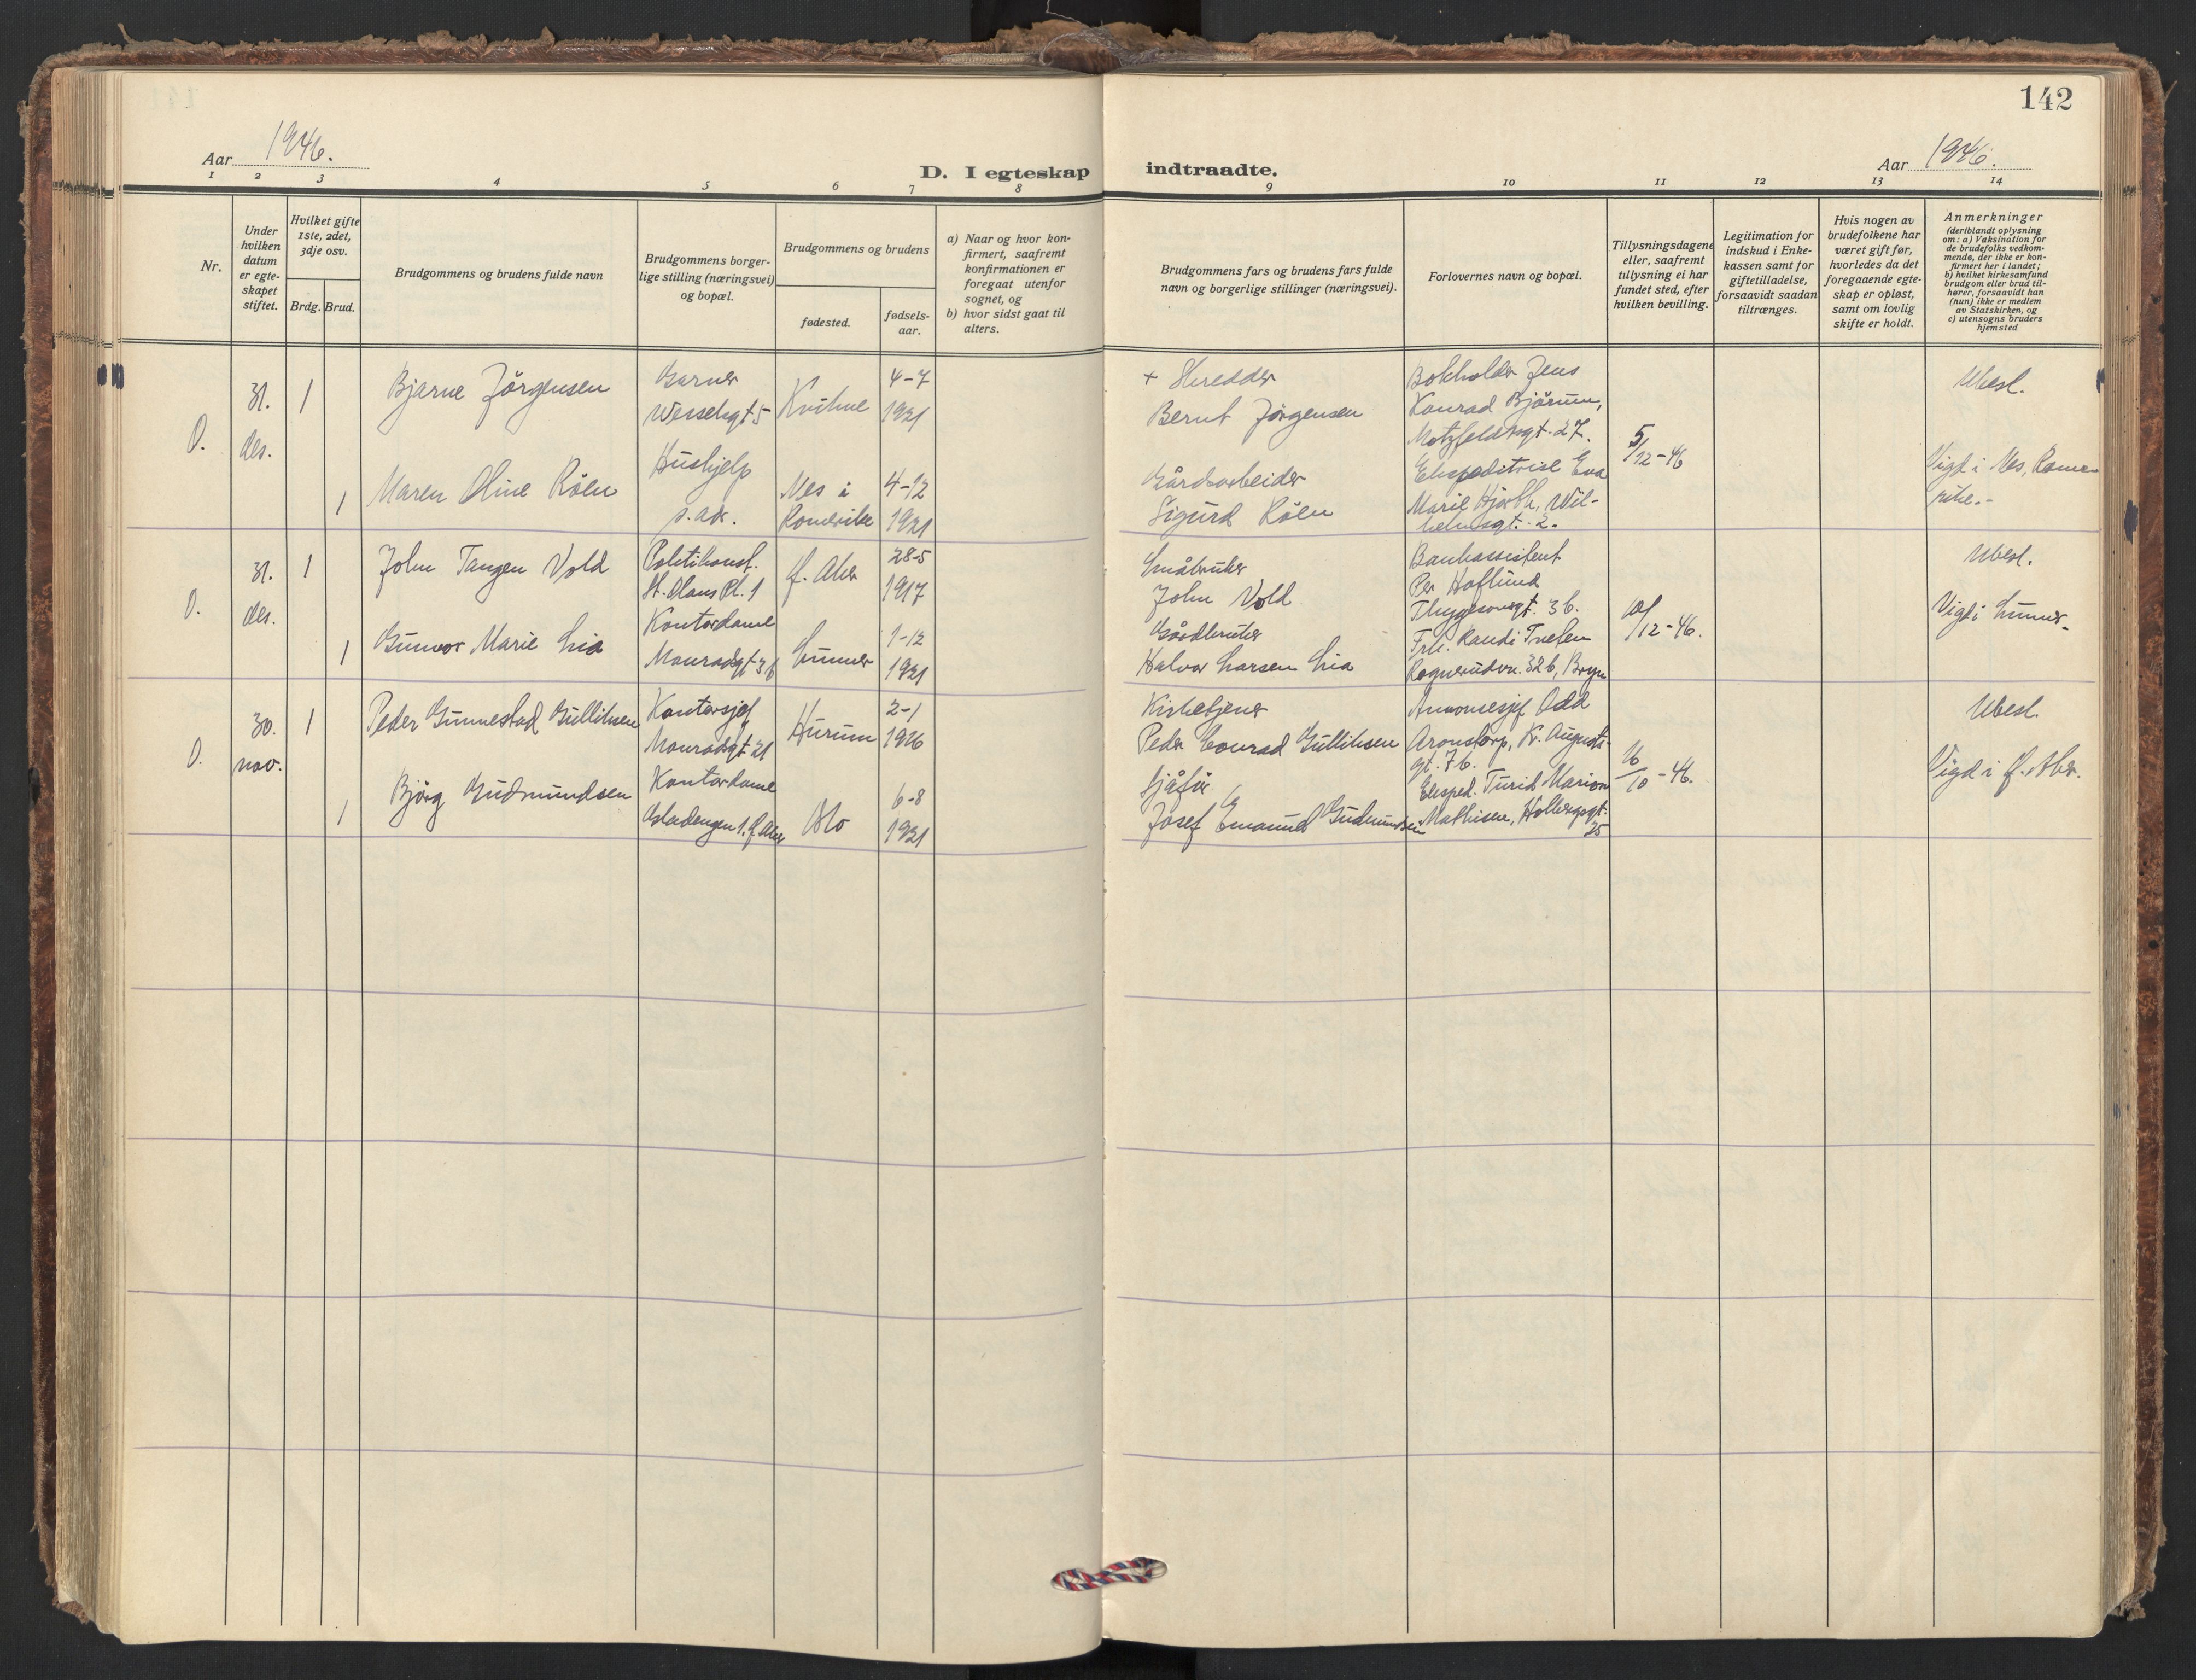 142
Aar 1946.
D. I egteskap indtraadte.
Aar 1946.
1 2 3 4 5 6 7 8 9 10 11 12 13 14
Nr.
Under hvilken datum er egte-skapet stiftet.
Hvilket gifte 1ste, 2det, 3dje osv.
Brdg. Brud.
Brudgommens og brudens fulde navn
Brudgommens borger-
lige stilling (næringsvei)
og bopæl.
Brudgommens og brudens
fødested.
fødsels-
aar.
a) Naar og hvor kon-
firmert, saafremt
konfirmationen er
foregaat utenfor
sognet, og
b) hvor sidst gaat til
alters.
Brudgommens fars og brudens fars fulde
navn og borgerlige stillinger (næringsvei).
Forlovernes navn og bopæl.
Tillysningsdagene
eller, saafremt
tillysning ei har
fundet sted, efter
hvilken bevilling.
Legitimation for
indskud i Enke-
kassen samt for
giftetilladelse,
forsaavidt saadan
tiltrænges.
Hvis nogen av
brudefolkene har
været gift før,
hvorledes da det
foregaaende egte-
skap er opløst,
samt om lovlig
skifte er holdt.
Anmerkninger
(deriblandt oplysning
om: a) Vaksination for
de brudefolks vedkom-
mende, der ikke er kon-
firmert her i landet;
b) hvilket kirkesamfund
brudgom eller brud til-
hører, forsaavidt han
(hun) ikke er medlem
av Statskirken, og
c) utensogns bruders
hjemsted
O.
31.
des.
1
Bjarne Jörgensen
Garner
Wesselsgt 5
Kvikne
4-7
1921
+ Skredder
Bernt Jörgensen
Bokholder Jens
Konrad Bjørum,
Motzfeldtsgt. 27.
5/12-46
Ubesl.
1
Maren Oline Röen
Hushjelp
s. adr.
Nes i
Romerike
4-12
1921
Gårdsarbeider
Sigurd Röen
Ekspeditrise Eva
Marie Hjorth, Wil-
helmsgt. 2.
Vigd i Nes, Rome-
rike.-
O.
31.
des.
1
John Tangen Vold
Politikonst.
St. Olavs Pl. 1
f. Aker
28-5
1917
Småbruker
John Vold
Bankassistent
Per Hoflund
Thygesonsgt. 3b.
10/12-46.
Ubesl.
1
Gunvor Marie Lia
Kontordame
Monradsgt 3b
Lunner
1-12
1921
Gårdbruker
Halvor Larsen Lia
Frk. Randi Tveten
Rognerudvn. 32b, Bryn
Vigd i Lunner.
O.
30.
nov.
1
Peder Gunnestad Gulliksen
Kontorsjef
Monradsgt 21
Hurum
2-1
1916
Kirketjener
Peder Conrad Gulliksen
Annonsesjef Odd
Aronstorp, Kr. Augusts-
gt. 7b.
16/10-46.
Ubesl.
1
Björg Gudmundsen
Kontordame
Gladengen 1. f. Aker
Oslo
6-8
1921
Sjåför
Josef Emanuel Gudmundsen
Eksped. Turid Marion
Mathisen, Holbergsgt.
25
Vigd i f. Aker.